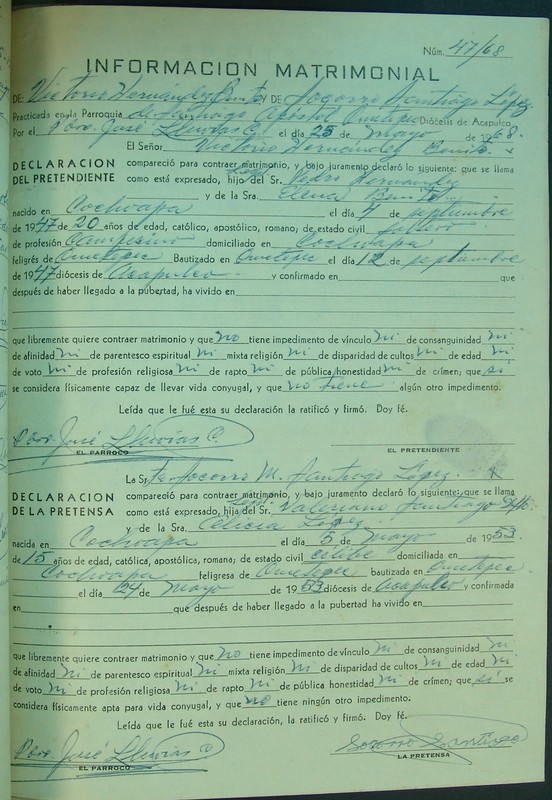 Núm. 47/68
INFORMACION MATRIMONIAL
DE: Victorio Hernández Benito Y DE Socorro Santiago López
Practicada en la Parroquia de Santiago Apóstol Ometepec Diócesis de Acapulco
Por el Pbro. José Lluvias C. el día 25 de mayo de 1968.
El Señor Victorio Hernández Benito x
DECLARACION DEL PRETENDIENTE
compareció para contraer matrimonio, y bajo juramento declaró lo siguiente: que se llama
como está expresado, hijo Leg. del Sr. Pedro Hernández
y de la Sra. Elena Benito
nacido en Cochoapa el día 4 de septiembre
de 1947 de 20 años de edad, católico, apostólico, romano; de estado civil soltero
de profesión Campesino domiciliado en Cochoapa
feligrés de Ometepec Bautizado en Ometepec el día 12 de septiembre
de 1947 diócesis de Acapulco y confirmado en que
después de haber llegado a la pubertad, ha vivido en
que libremente quiere contraer matrimonio y que no tiene impedimento de vínculo ni de consanguinidad ni
de afinidad ni de parentesco espiritual ni mixta religión ni de disparidad de cultos ni de edad ni
de voto ni de profesión religiosa ni de rapto ni de pública honestidad ni de crímen; que sí
se considera físicamente capaz de llevar vida conyugal, y que no tiene algún otro impedimento.
Leída que le fué esta su declaración la ratificó y firmó. Doy fé.
Pbro. José Lluvias C.
EL PARROCO EL PRETENDIENTE
La Srta. Socorro M. Santiago López x
DECLARACION DE LA PRETENSA
compareció para contraer matrimonio, y bajo juramento declaró lo siguiente: que se llama
como está expresado, hija Leg. del Sr. Valeriano Santiago
y de la Sra. Celicia López
nacida en Cochoapa el día 5 de mayo de 1953
de 15 años de edad, católica, apostólica, romana; de estado civil célibe domiciliada en
Cochoapa feligresa de Ometepec bautizada en Ometepec
el día 24 de mayo de 1953 diócesis de Acapulco y confirmada
en que después de haber llegado a la pubertad ha vivido en
que libremente quiere contraer matrimonio y que no tiene impedimento de vínculo ni de consanguinidad ni
de afinidad ni de parentesco espiritual ni mixta religión ni de disparidad de cultos ni de edad ni
de voto ni de profesión religiosa ni de rapto ni de pública honestidad ni de crímen; que sí se
considera físicamente apta para vida conyugal, y que no tiene ningún otro impedimento.
Leída que le fué esta su declaración, la ratificó y firmó. Doy fé.
Pbro. José Lluvias C. Socorro Santiago
EL PARROCO LA PRETENSA